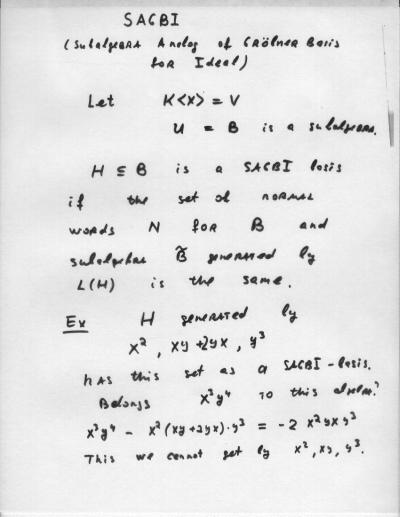 SAGBI
(Subalgebra Analog of Gröbner Basis
for Ideal)
Let K<X> = V
U = B is a subalgebra.
H ⊆ B is a SAGBI basis
if the set of normal
words N for B and
subalgebra B̃ generated by
L(H) is the same.
Ex H generated by
x², xy+2yx, y³
has this set as a SAGBI-basis.
Belongs x³y⁴ to this algebra?
x³y⁴ - x²(xy+2yx)·y³ = -2 x²yxy³
This we cannot get by x², xy, y³.